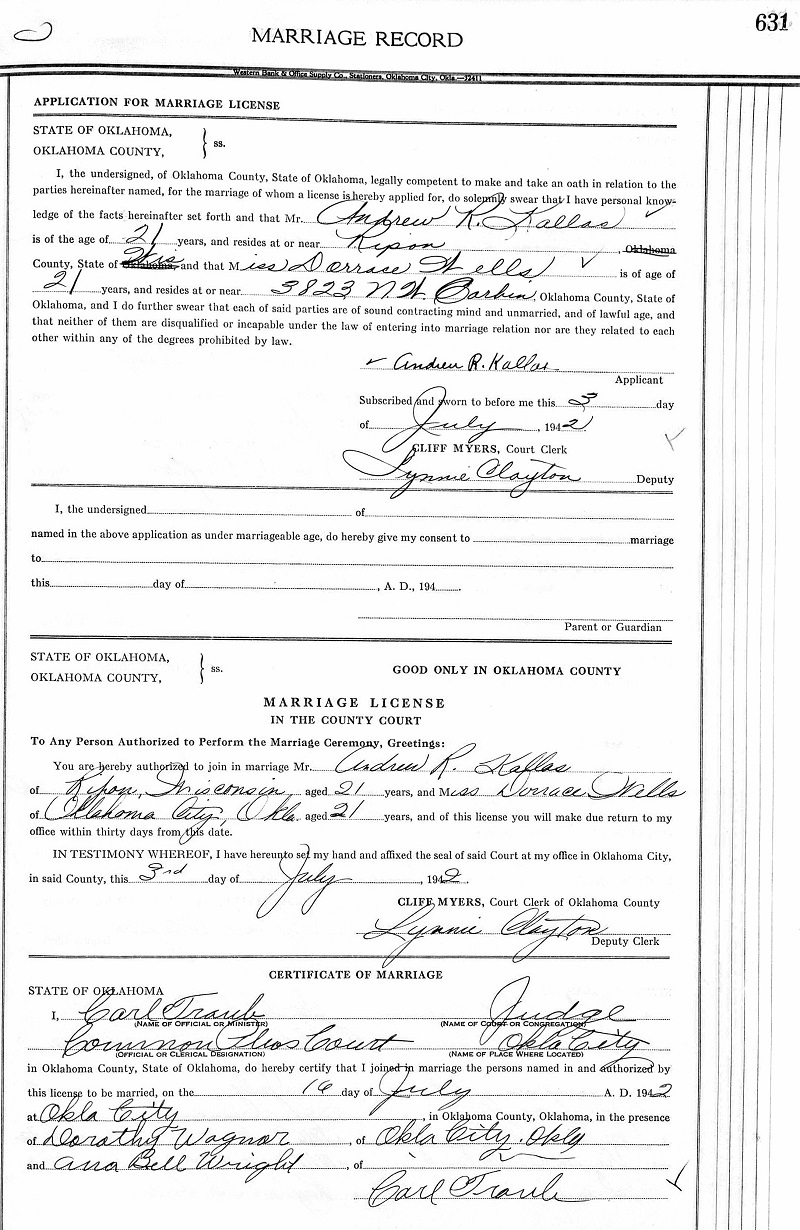 631
MARRIAGE RECORD
Western Bank & Office Supply Co., Stationers, Oklahoma City, Okla.—52411
APPLICATION FOR MARRIAGE LICENSE
STATE OF OKLAHOMA,
OKLAHOMA COUNTY, } ss.
I, the undersigned, of Oklahoma County, State of Oklahoma, legally competent to make and take an oath in relation to the
parties hereinafter named, for the marriage of whom a license is hereby applied for, do solemnly swear that I have personal know-
ledge of the facts hereinafter set forth and that Mr. Andrew R. Kallas
is of the age of 21 years, and resides at or near Ripon, Oklahoma
County, State of Oklahoma, Wis and that Miss Dorrace Wells is of age of
21 years, and resides at or near 3823 N.W. Oklahoma County, State of
Oklahoma, and I do further swear that each of said parties are of sound contracting mind and unmarried, and of lawful age, and
that neither of them are disqualified or incapable under the law of entering into marriage relation nor are they related to each
other within any of the degrees prohibited by law.
Andrew R. Kallas
Applicant
Subscribed and sworn to before me this 3 day
of July, 1942
CLIFF MYERS, Court Clerk
Lynnie Clayton Deputy
I, the undersigned of
named in the above application as under marriageable age, do hereby give my consent to marriage
to
this day of , A. D., 194 .
Parent or Guardian
STATE OF OKLAHOMA,
OKLAHOMA COUNTY, } ss. GOOD ONLY IN OKLAHOMA COUNTY
MARRIAGE LICENSE
IN THE COUNTY COURT
To Any Person Authorized to Perform the Marriage Ceremony, Greetings:
You are hereby authorized to join in marriage Mr. Andrew R. Kallas
of Ripon, Wisconsin, aged 21 years, and Miss Dorrace Wells
of Oklahoma City, Okla. aged 21 years, and of this license you will make due return to my
office within thirty days from this date.
IN TESTIMONY WHEREOF, I have hereunto set my hand and affixed the seal of said Court at my office in Oklahoma City,
in said County, this 3rd day of July, 1942
CLIFF MYERS, Court Clerk of Oklahoma County
Lynnie Clayton
Deputy Clerk
CERTIFICATE OF MARRIAGE
STATE OF OKLAHOMA
I, Carl Traub Judge
(NAME OF OFFICIAL OR MINISTER) (NAME OF COURT OR CONGREGATION)
Common Pleas Court Okla City
(OFFICIAL OR CLERICAL DESIGNATION) (NAME OF PLACE WHERE LOCATED)
in Oklahoma County, State of Oklahoma, do hereby certify that I joined in marriage the persons named in and authorized by
this license to be married, on the 16 day of July A. D. 1942
at Okla City, in Oklahoma County, Oklahoma, in the presence
of Dorothy Wagnor, of Okla City, Okla
and Ana Bell Wright, of
Carl Traub